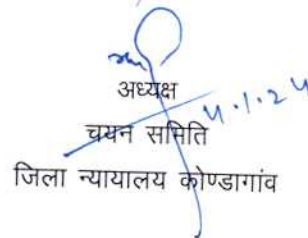 अध्यक्ष
4.1.24
चयन समिति
जिला न्यायालय कोण्डागांव